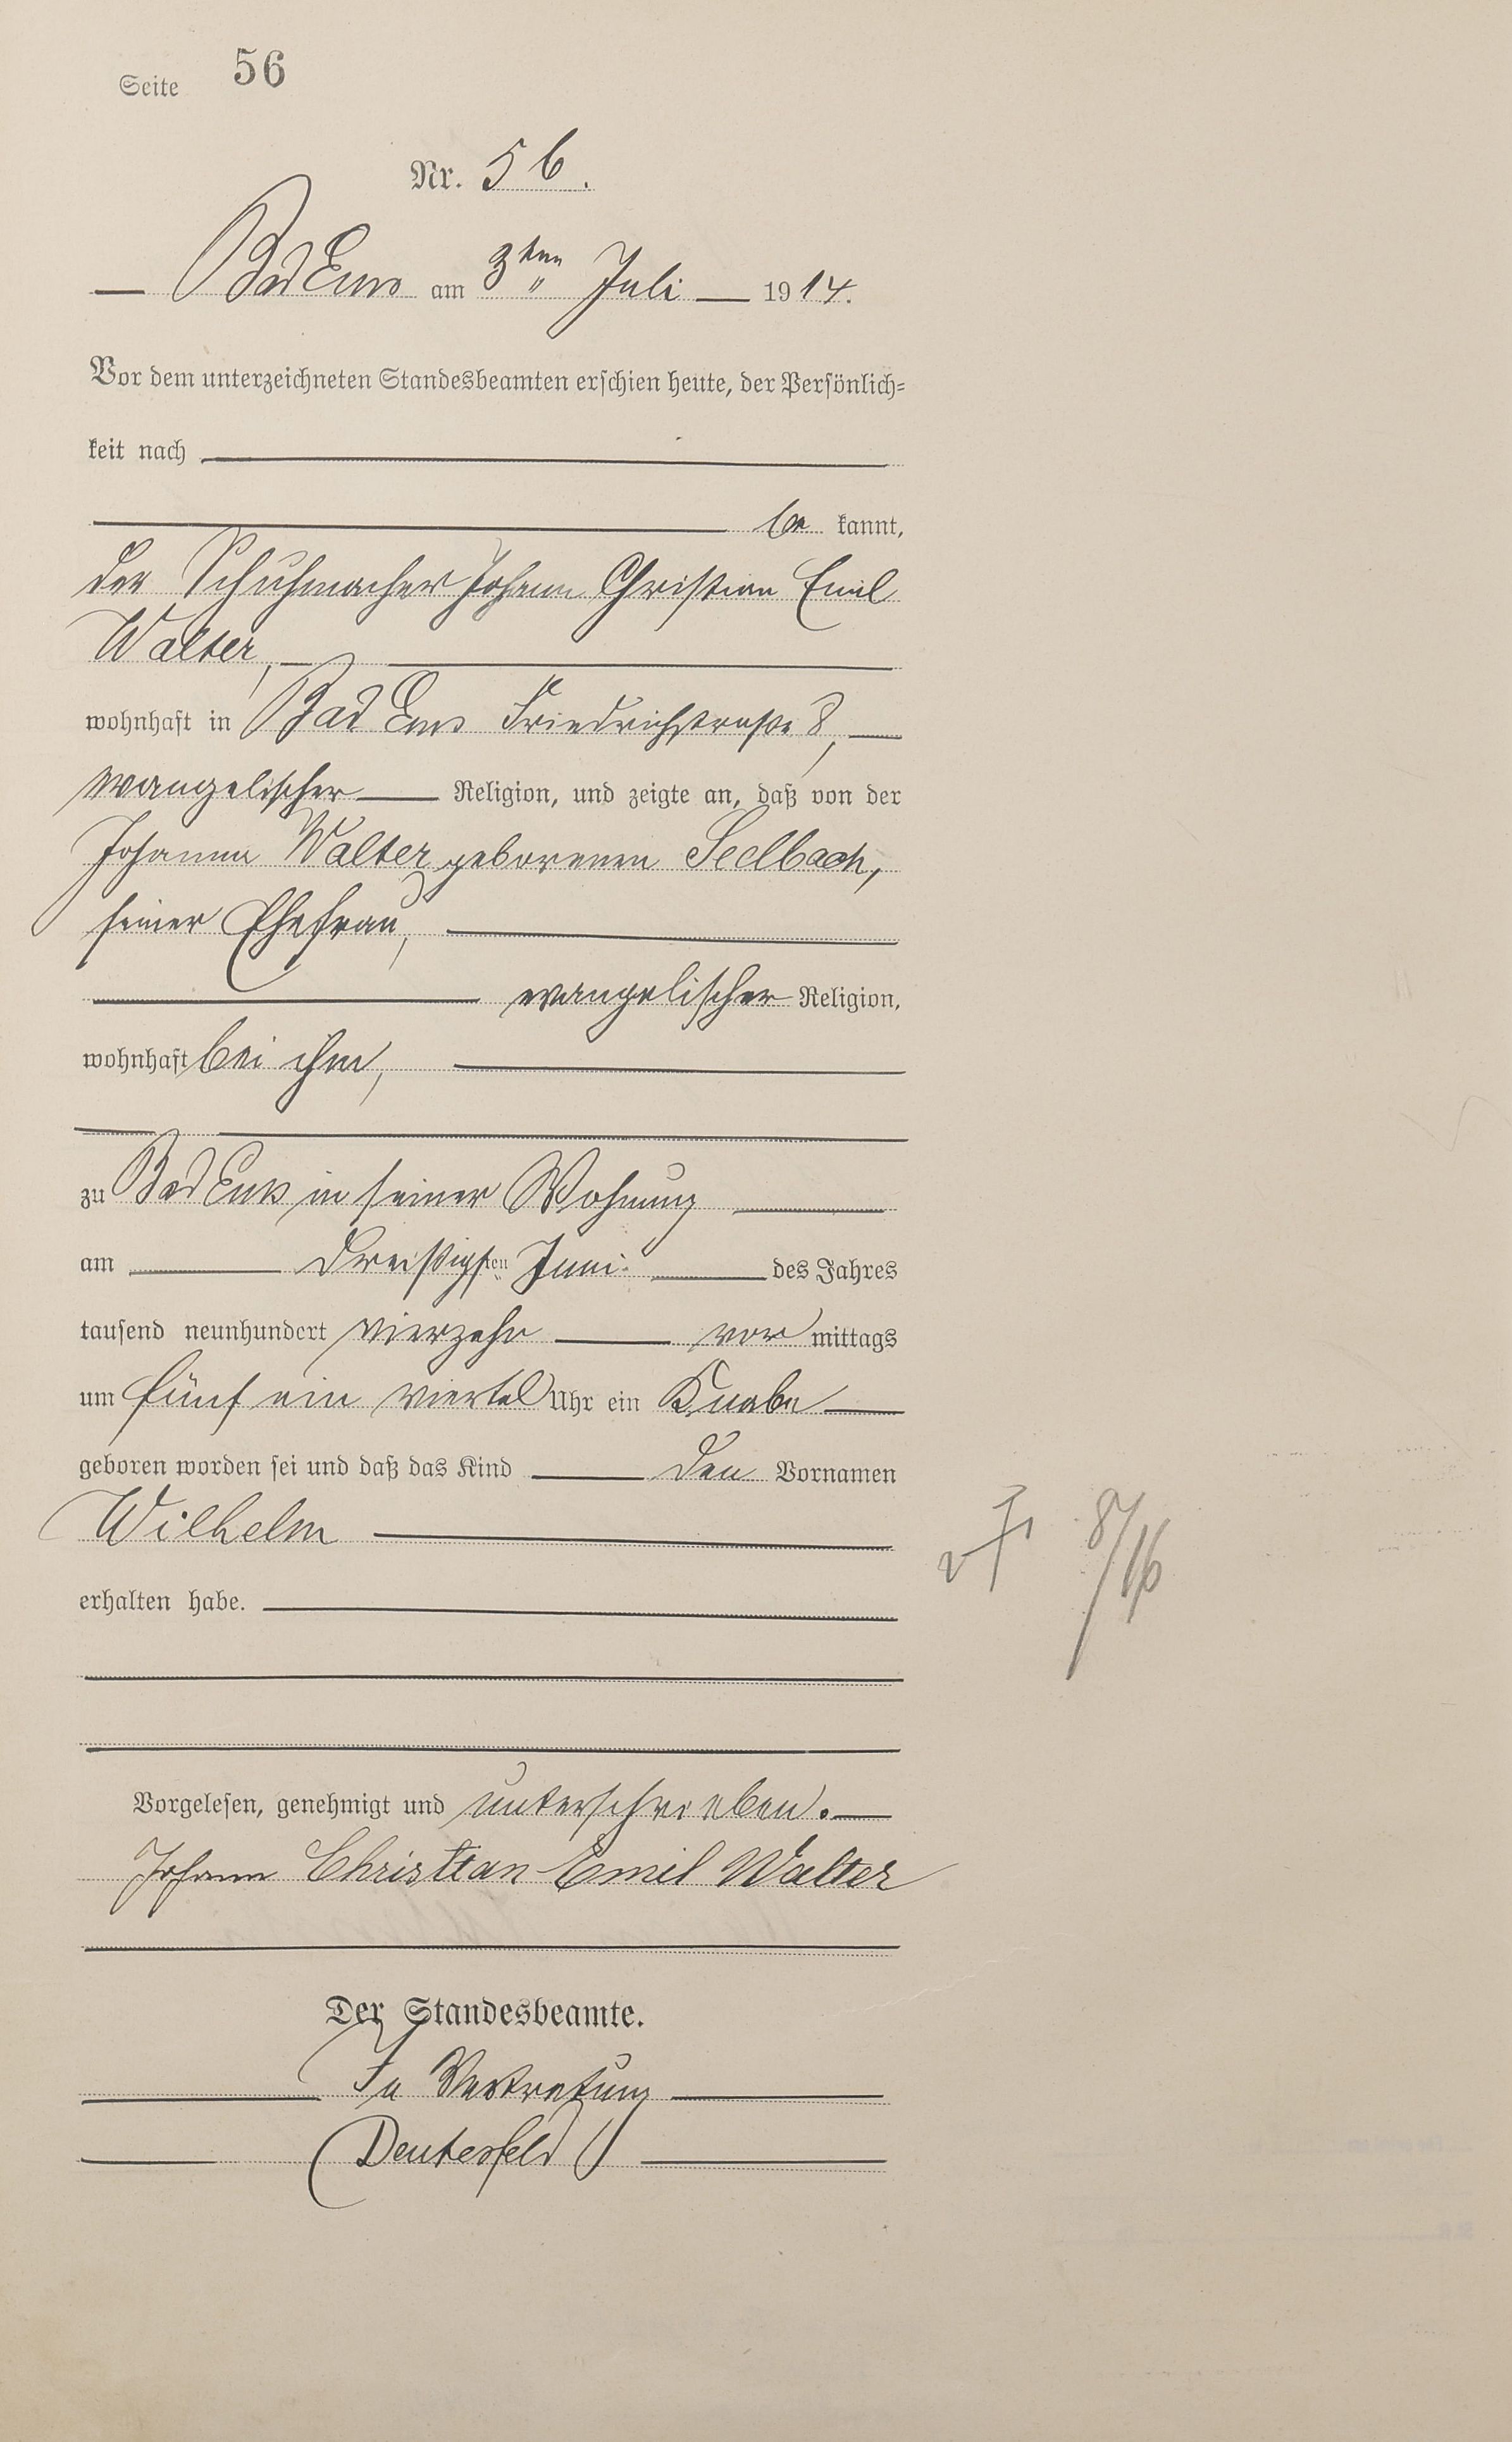 Seite 56
Nr. 56.
Bad Ems am 3ten Juli 1914.
Vor dem unterzeichneten Standesbeamten erschien heute, der Persönlich-
keit nach
be kannt,
der Schuhmacher Johann Christian Emil
Walter,
wohnhaft in Bad Ems Friedrichstraße 8,
evangelischer Religion, und zeigte an, daß von der
Johanna Walter geborenen Seelbach,
seiner Ehefrau,
evangelischer Religion,
wohnhaft bei ihm,
zu Bad Ems in seiner Wohnung
am dreißigsten Juni des Jahres
tausend neunhundert vierzehn vor mittags
um fünf ein viertel Uhr ein Knabe
geboren worden sei und daß das Kind den Vornamen
Wilhelm
erhalten habe.
Vorgelesen, genehmigt und unterschrieben.
Johann Christian Emil Walter
Der Standesbeamte.
In Vertretung
Deuterfeld